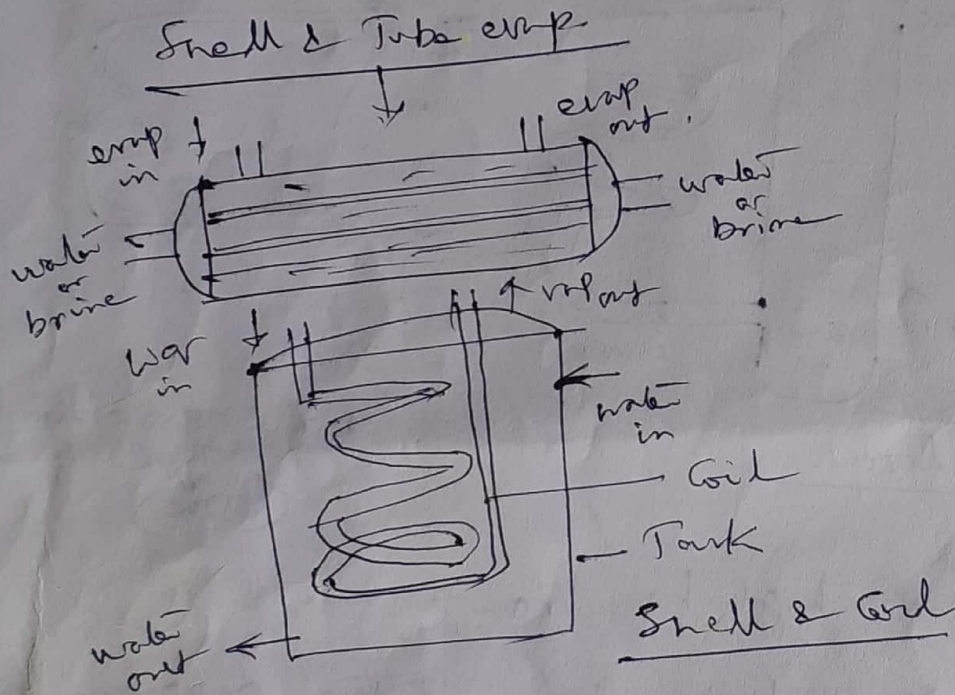 Shell & Tube evap
evap
in
evap
out.
water
or
brine
water
or
brine
in
vap out
water
in
Coil
Tank
water
out
Shell & Coil